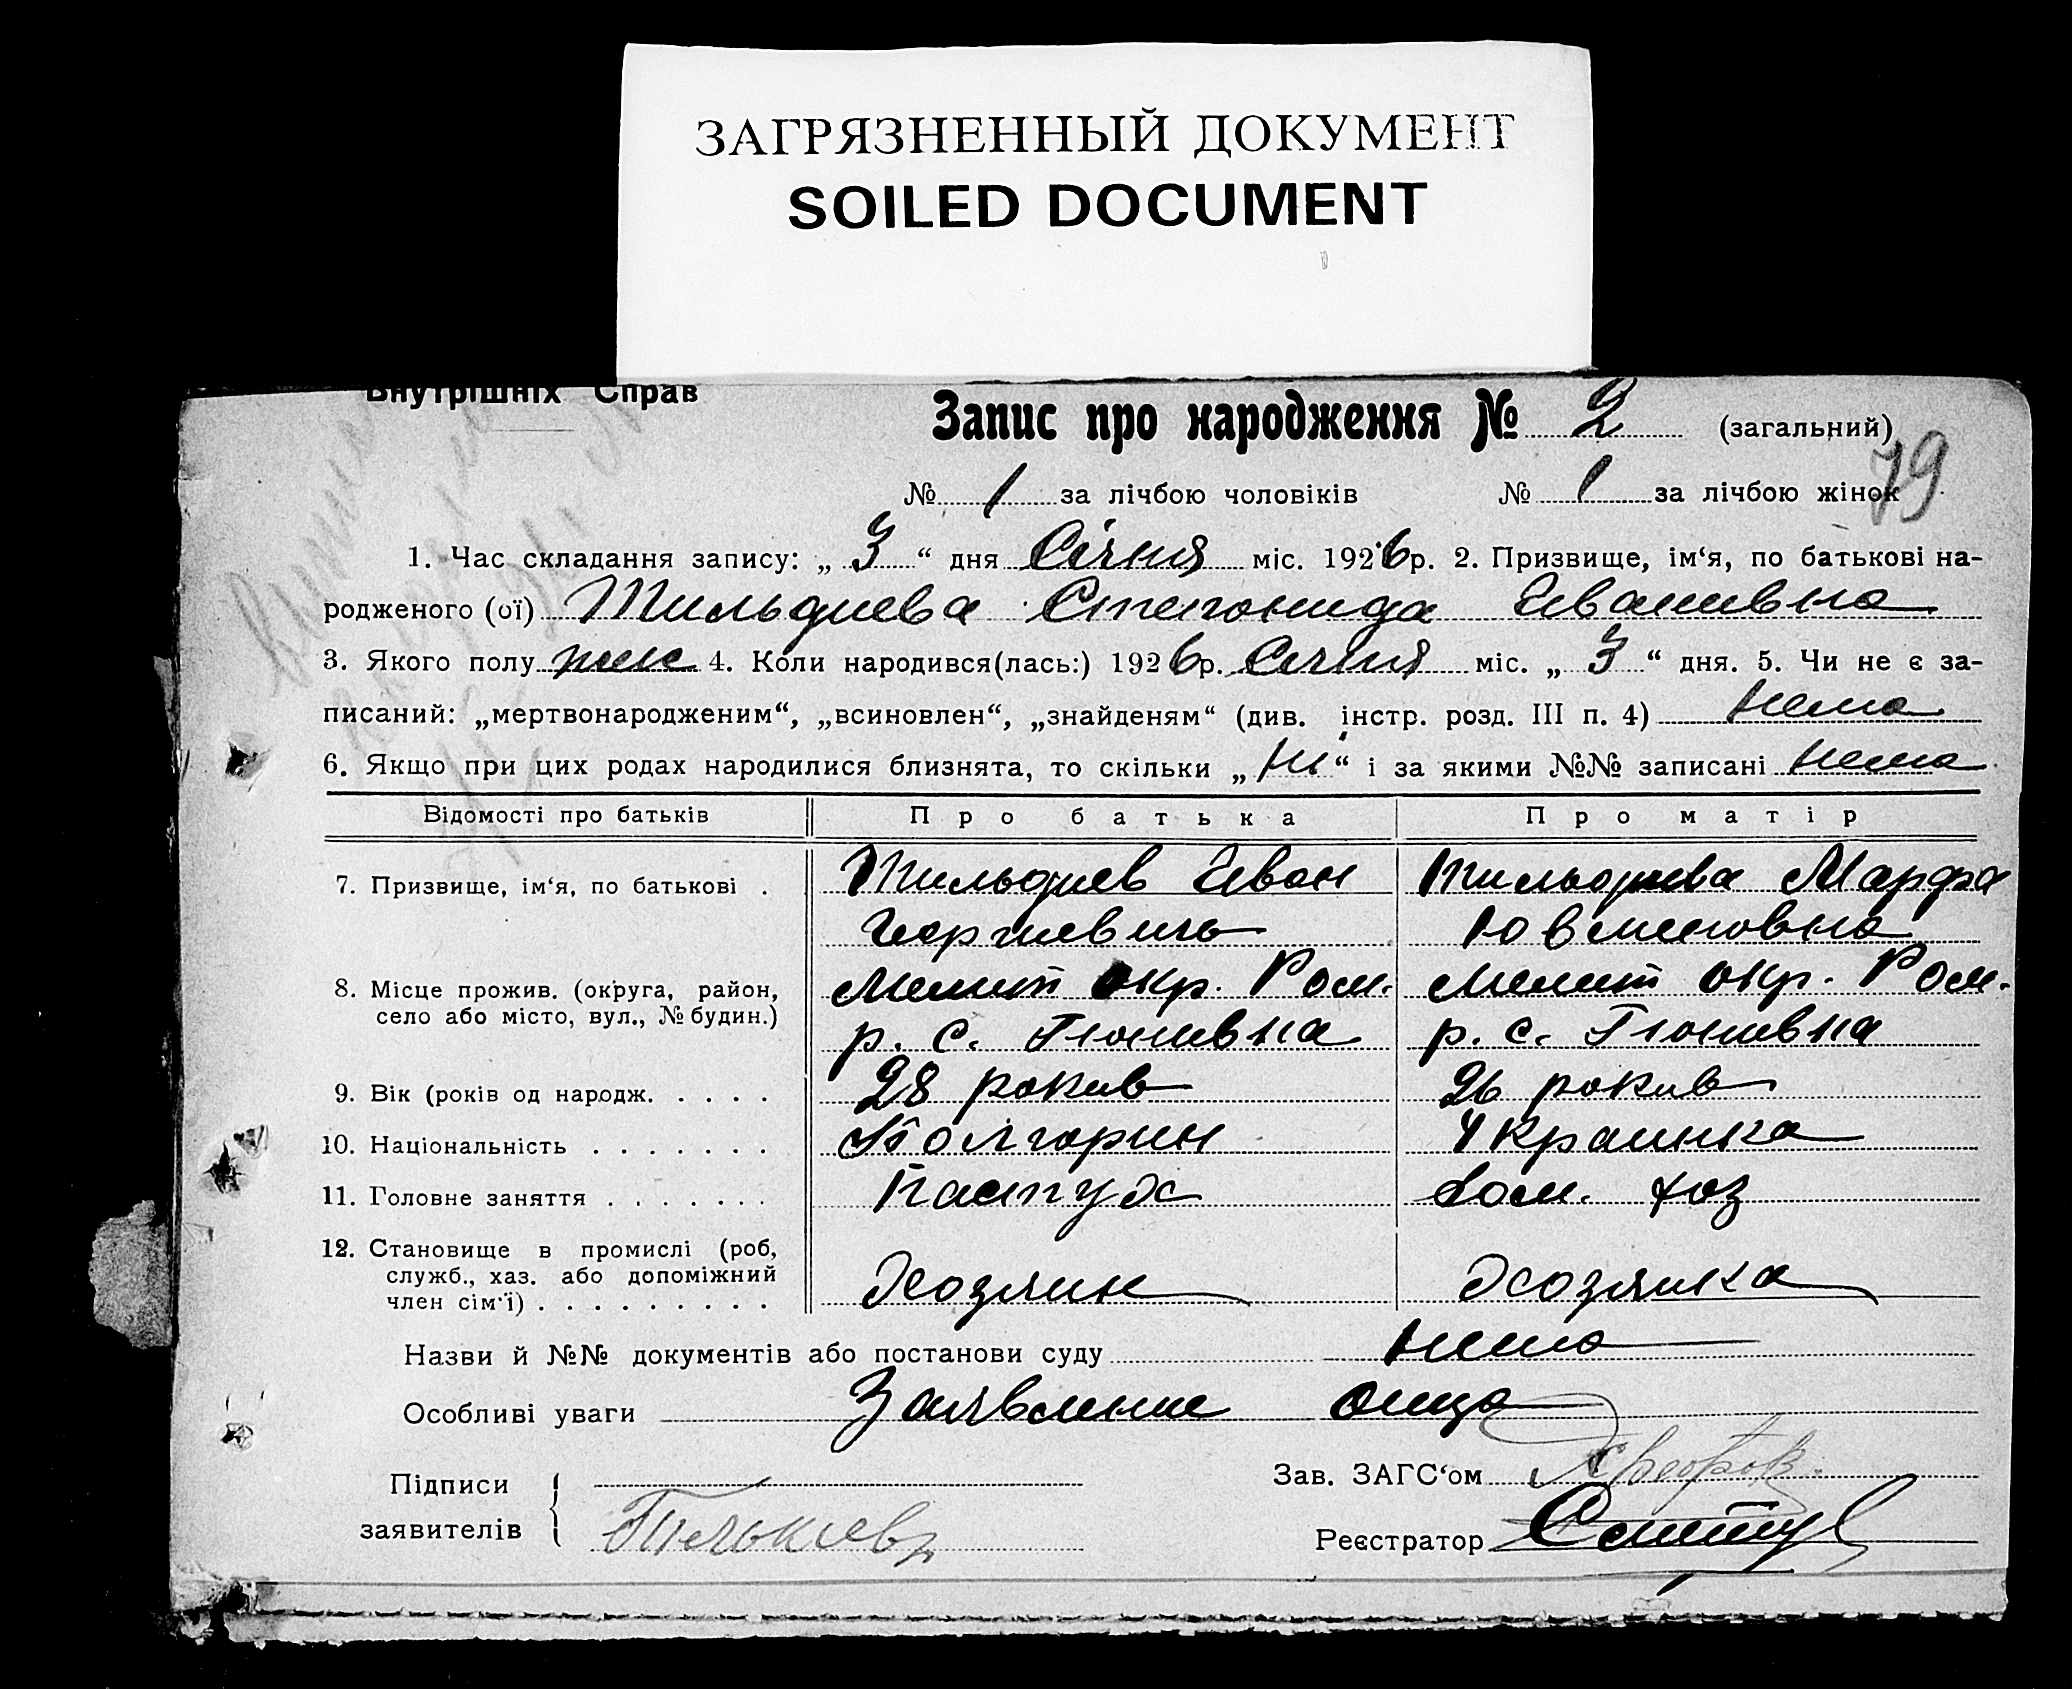 ЗАГРЯЗНЕННЫЙ ДОКУМЕНТ
SOILED DOCUMENT
Внутрішніх Справ
Запис про народження № 2 (загальний)
79
№ 1 за лічбою чоловіків № 1 за лічбою жінок
1. Час складання запису: „ 3 “ дня Січня міс. 1926 р. 2. Призвище, ім‘я, по батькові на-
родженого (ої) Тильдиева Степонида Иванивна
3. Якого полу жис 4. Коли народився(лась:) 1926 р. Сичня міс. „ 3 “ дня. 5. Чи не є за-
писаний: „мертвонародженим“, „всиновлен“, „знайденям“ (див. інстр. розд. III п. 4) нема
6. Якщо при цих родах народилися близнята, то скільки „ Ні “ і за якими №№ записані нема
Відомості про батьків Про батька Про матір
7. Призвище, ім‘я, по батькові . Тильдиев Иван Тильдиева Марфа
Георгиевичь
8. Місце прожив. (округа, район, Мелит окр. Ром. Мелит окр. Ром.
село або місто, вул., № будин.) р. с. Гюнивка р. с. Гюнивка
9. Вік (років од народж. . . . . 28 рокив 26 рокив
10. Національність . . . . . . . Болгорин Украинка
11. Головне заняття . . . . . . . Пастух Дом. хоз
12. Становище в промислі (роб,
служб., хаз. або допоміжний Хозяин Хозяика
член сім‘ї) . . . . . . . . .
Назви й №№ документів або постанови суду нема
Особливі уваги Заявление отца
Підписи Зав. ЗАГС‘ом
заявителів
Реєстратор